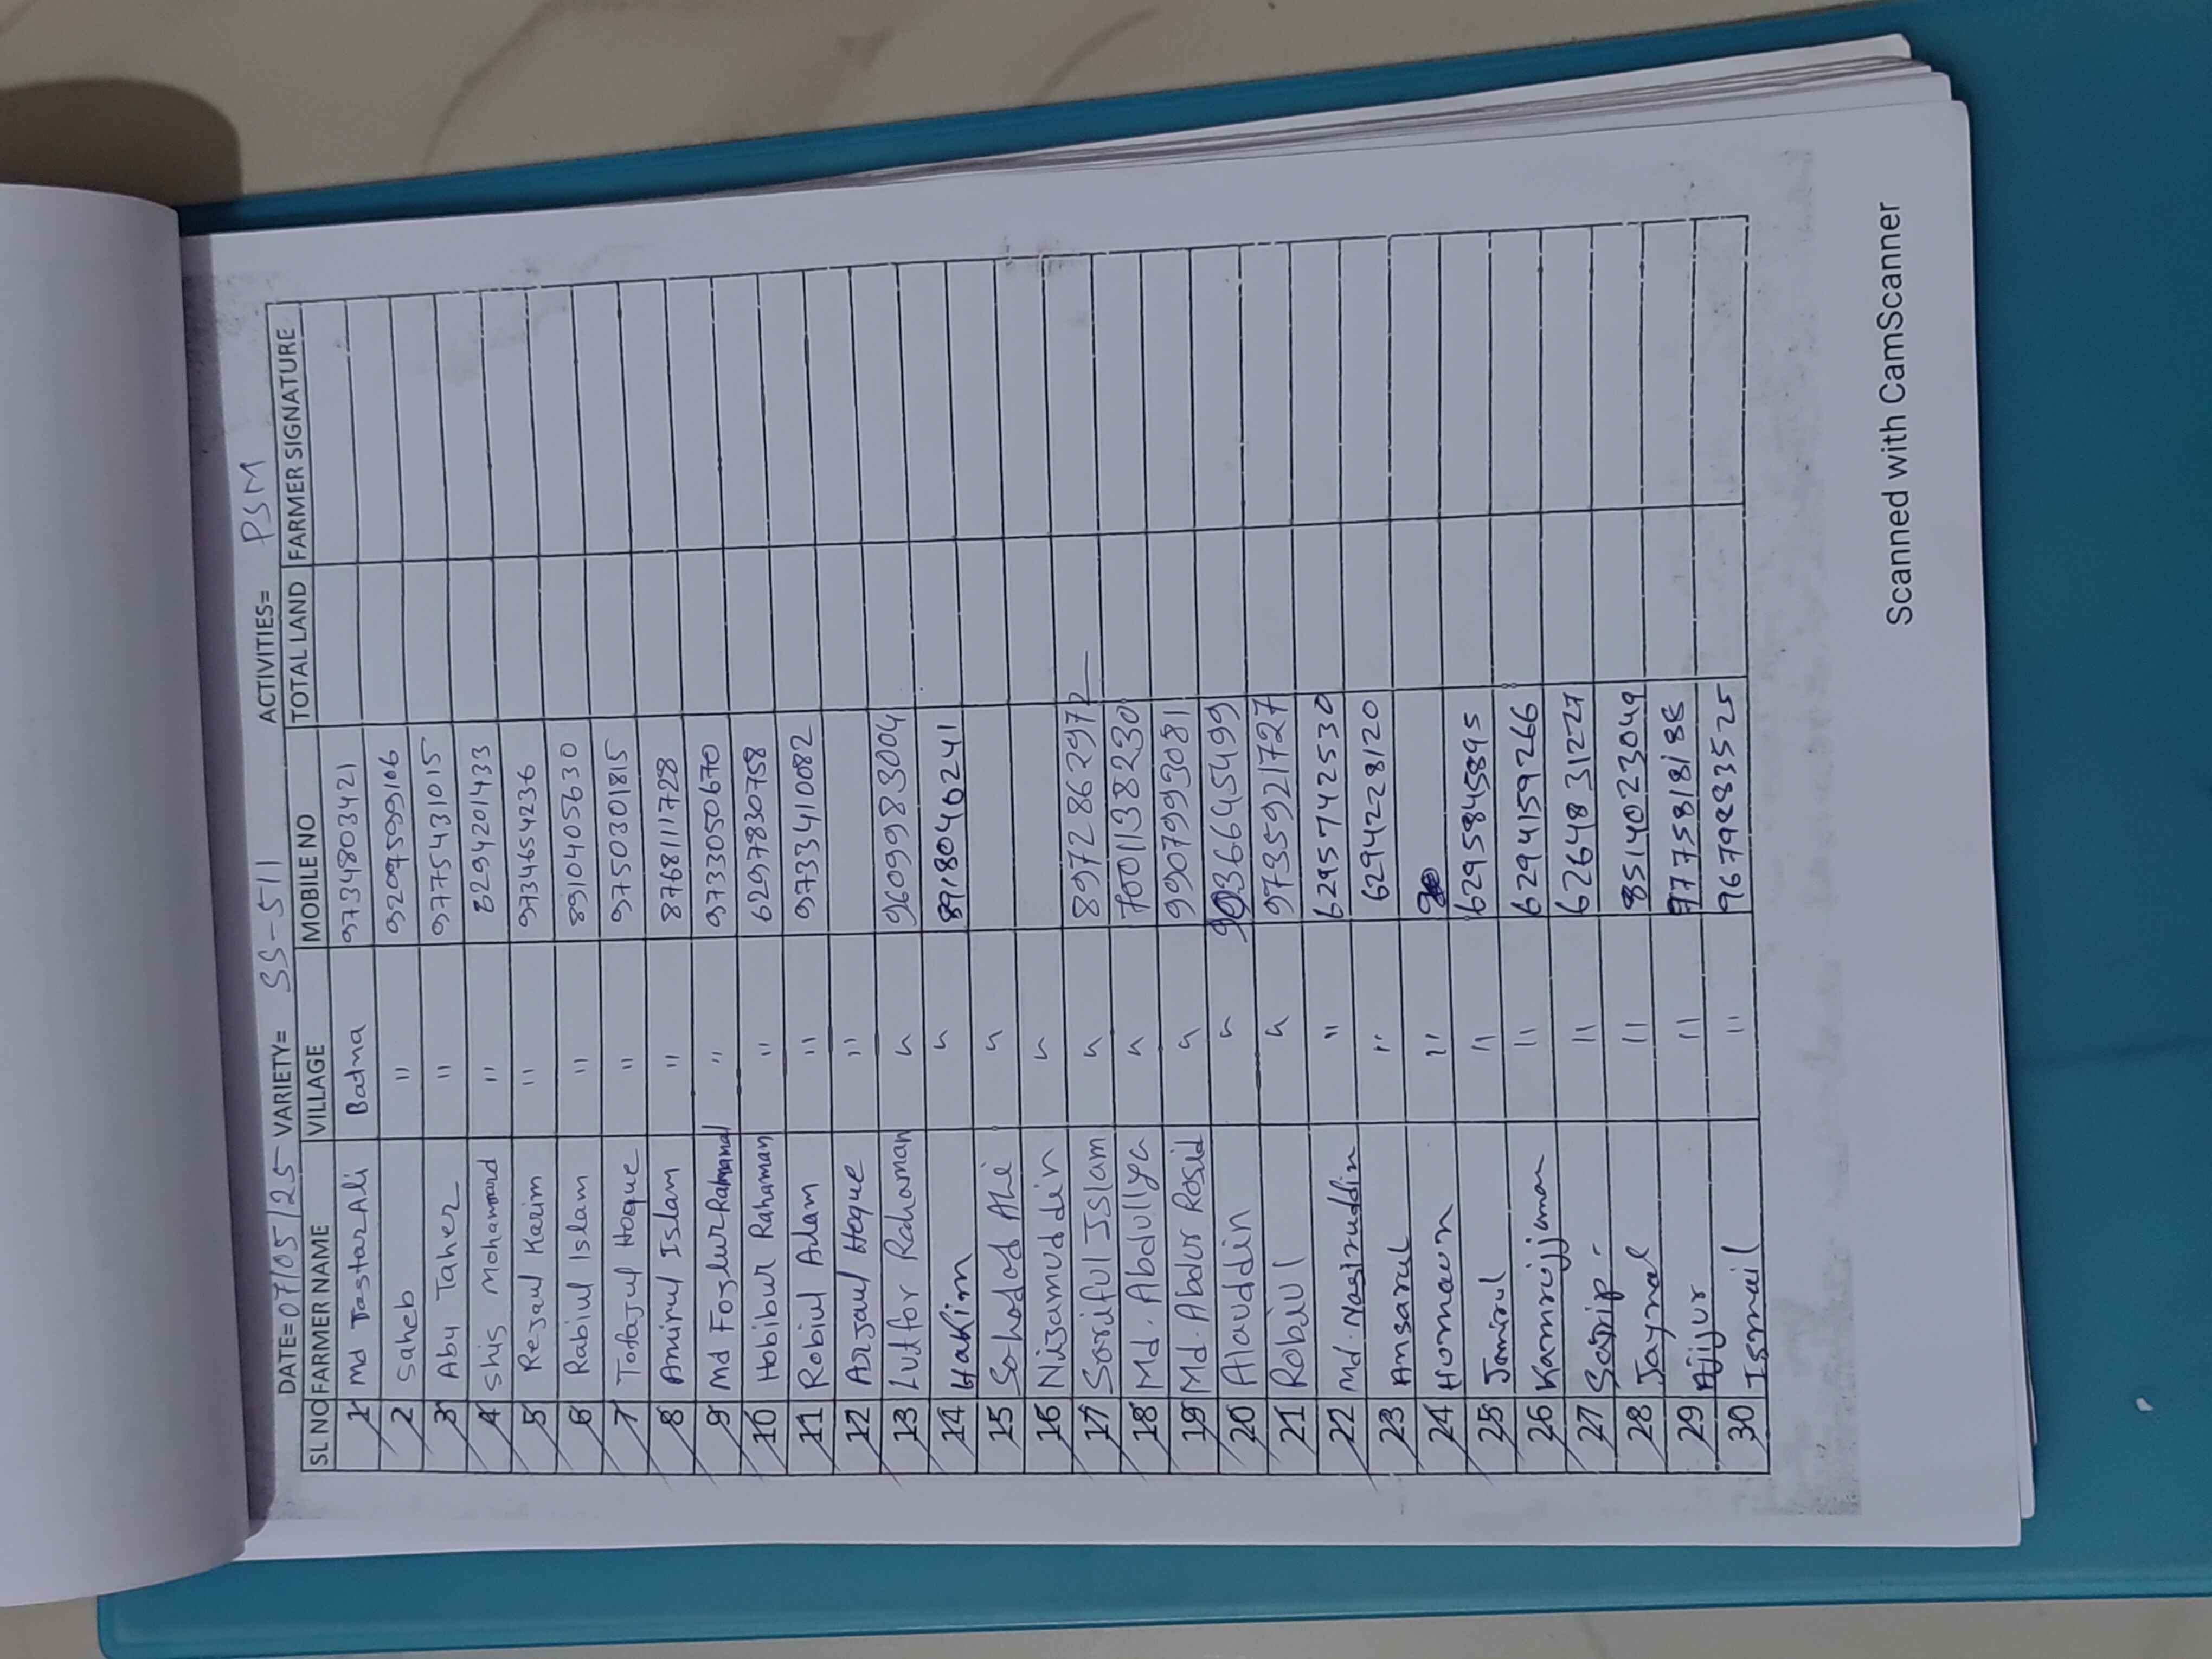 DATE=07/05/25 VARIETY= SS-511 ACTIVITIES= PSM
SL NO FARMER NAME VILLAGE MOBILE NO TOTAL LAND FARMER SIGNATURE
1 Md Tastar Ali Badna 9734803421
2 Saheb " 9209599106
3 Abu Taher " 9775431015
4 Shis Mohammard " 8294201433
5 Rejaul Karim " 9734654236
6 Rabiul Islam " 8910405630
7 Tofajul Hoque " 9750301815
8 Amirul Islam " 8768111728
9 Md Fozlur Rahaman " 9733050670
10 Hobibur Rahaman " 6297830758
11 Robiul Adam " 9733410082
12 Azjaul Hoque "
13 Lutfor Rahaman " 9609983004
14 Hakim " 8918046241
15 Sohodod Ali "
16 Nijamuddin "
17 Soriful Islam " 8972862972
18 Md. Abdullya " 7001138230
19 Md. Abdur Rosid " 9907993081
20 Alauddin "
21 Robiul " 9735921727
22 Md. Nasiruddin " 6295742530
23 Ansarul " 6294228120
24 Homaun "
25 Jamirul " 6295845895
26 Kamrujjaman " 6294159266
27 " 6264831227
28 Jaynal " 8514023049
29 Ajijur " 9775818188
30 Ismail " 9679883525
Scanned with CamScanner